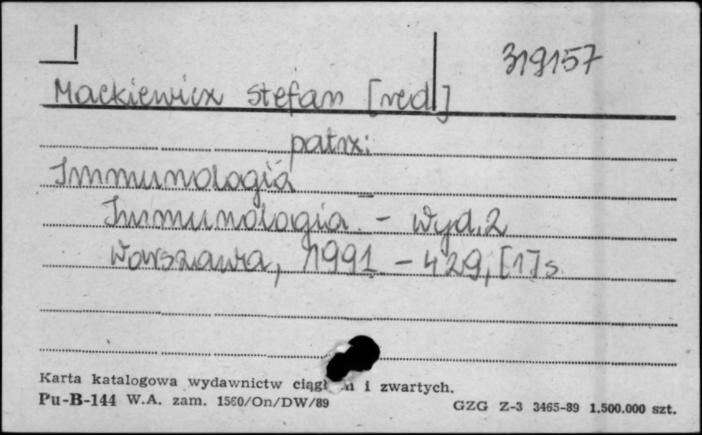 319157
Mackiewicz Stefan [red]
patrz:
Immunologia
Immunologia. - Wyd. 2
Warszawa, 1991 - 429, [1] s
Karta katalogowa wydawnictw i zwartych.
Pu-B-144 W.A. zam. 1560/On/DW/89
GZG Z-3 3465-89 1.500.000 szt.